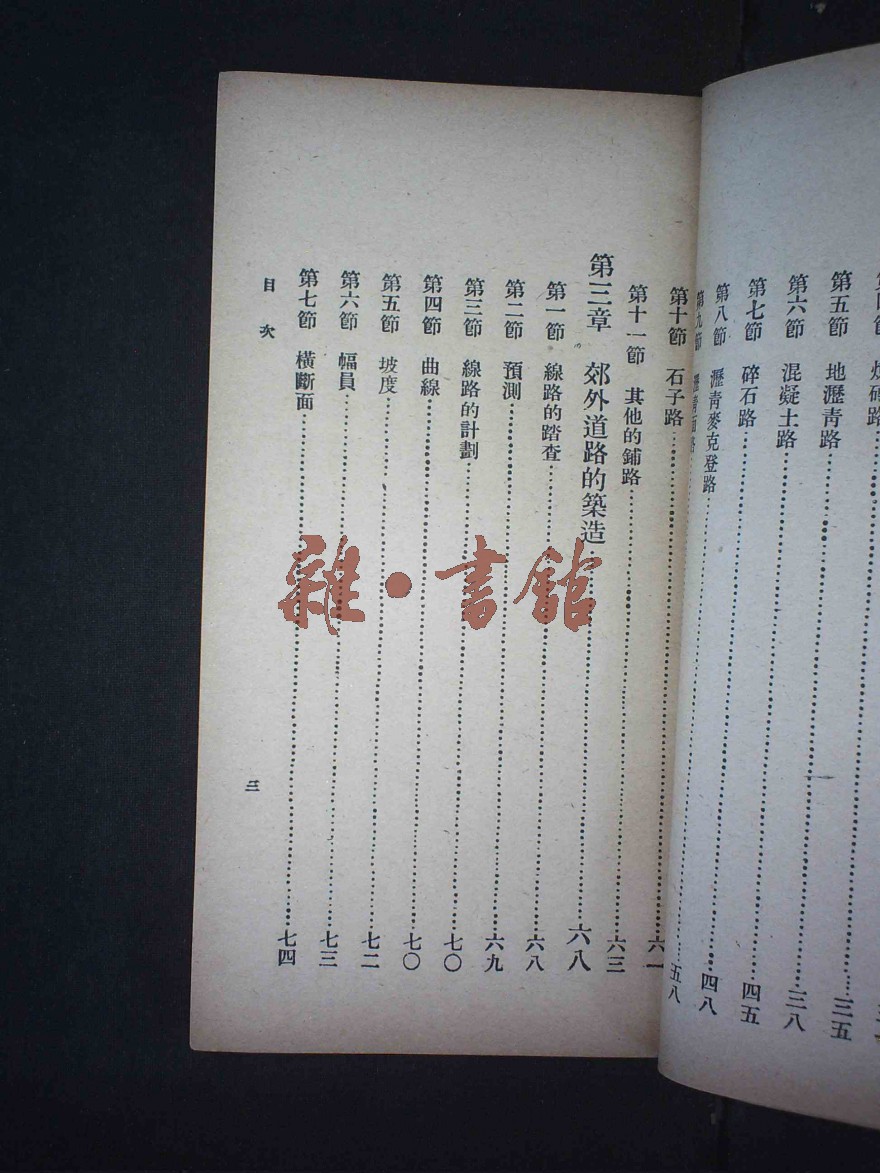 第五節 地瀝青路 三五
第六節 混凝土路 三八
第七節 碎石路 四五
第八節 瀝青麥克登路 四八
第九節 五八
第十節 石子路 六一
第十一節 其他的鋪路 六三
第三章 郊外道路的築造 六八
第一節 線路的踏查 六八
第二節 預測 六九
第三節 線路的計劃 七〇
第四節 曲線 七〇
第五節 坡度 七二
第六節 幅員 七三
第七節 橫斷面 七四
目次
三
雜·書館